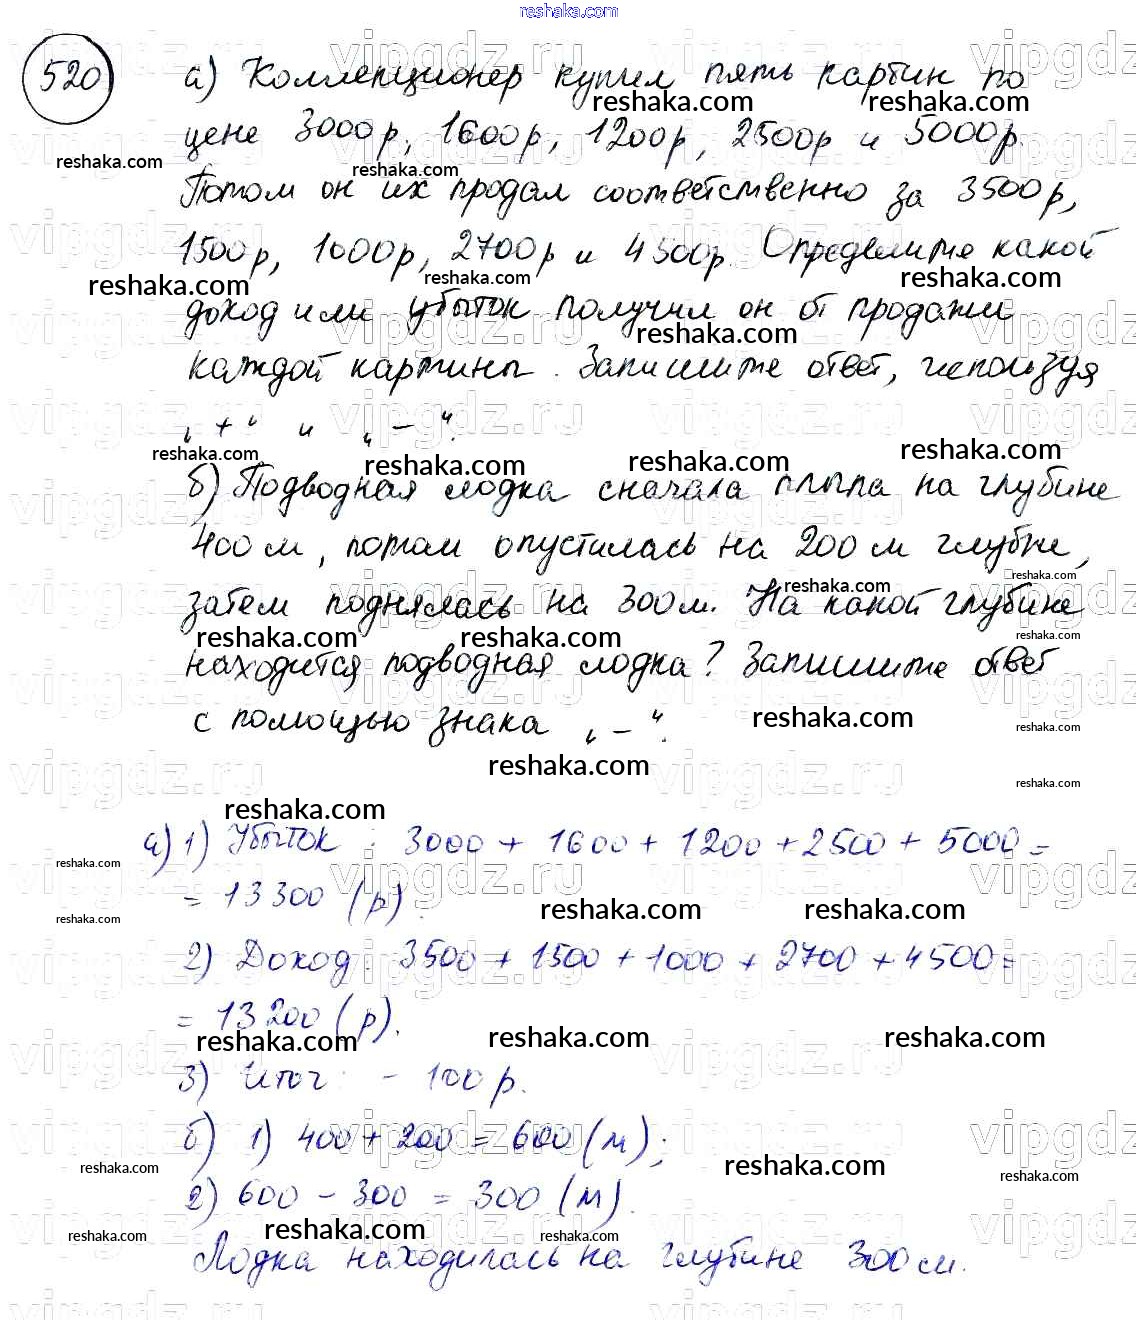 www.reshaka.com
520
а) Коллекционер купил пять картин по
цене 3000р, 1600р, 1200р, 2500р и 5000р.
Потом он их продал соответственно за 3500р,
1500р, 1000р, 2700р и 4500р. Определите какой
доход или убыток получил он от продажи
каждой картины. Запишите ответ, используя
„+“ и „–“.
б) Подводная лодка сначала плыла на глубине
400 м, потом опустилась на 200 м глубже,
затем поднялась на 300м. На какой глубине
находится подводная лодка? Запишите ответ
с помощью знака „–“.
а) 1) Убыток: 3000 + 1600 + 1200 + 2500 + 5000 =
= 13300 (р).
2) Доход: 3500 + 1500 + 1000 + 2700 + 4500 =
= 13200 (р).
3) Итог: – 100 р.
б) 1) 400 + 200 = 600 (м);
2) 600 – 300 = 300 (м).
Лодка находилась на глубине 300 м.
reshaka.com
vipgdz.ru